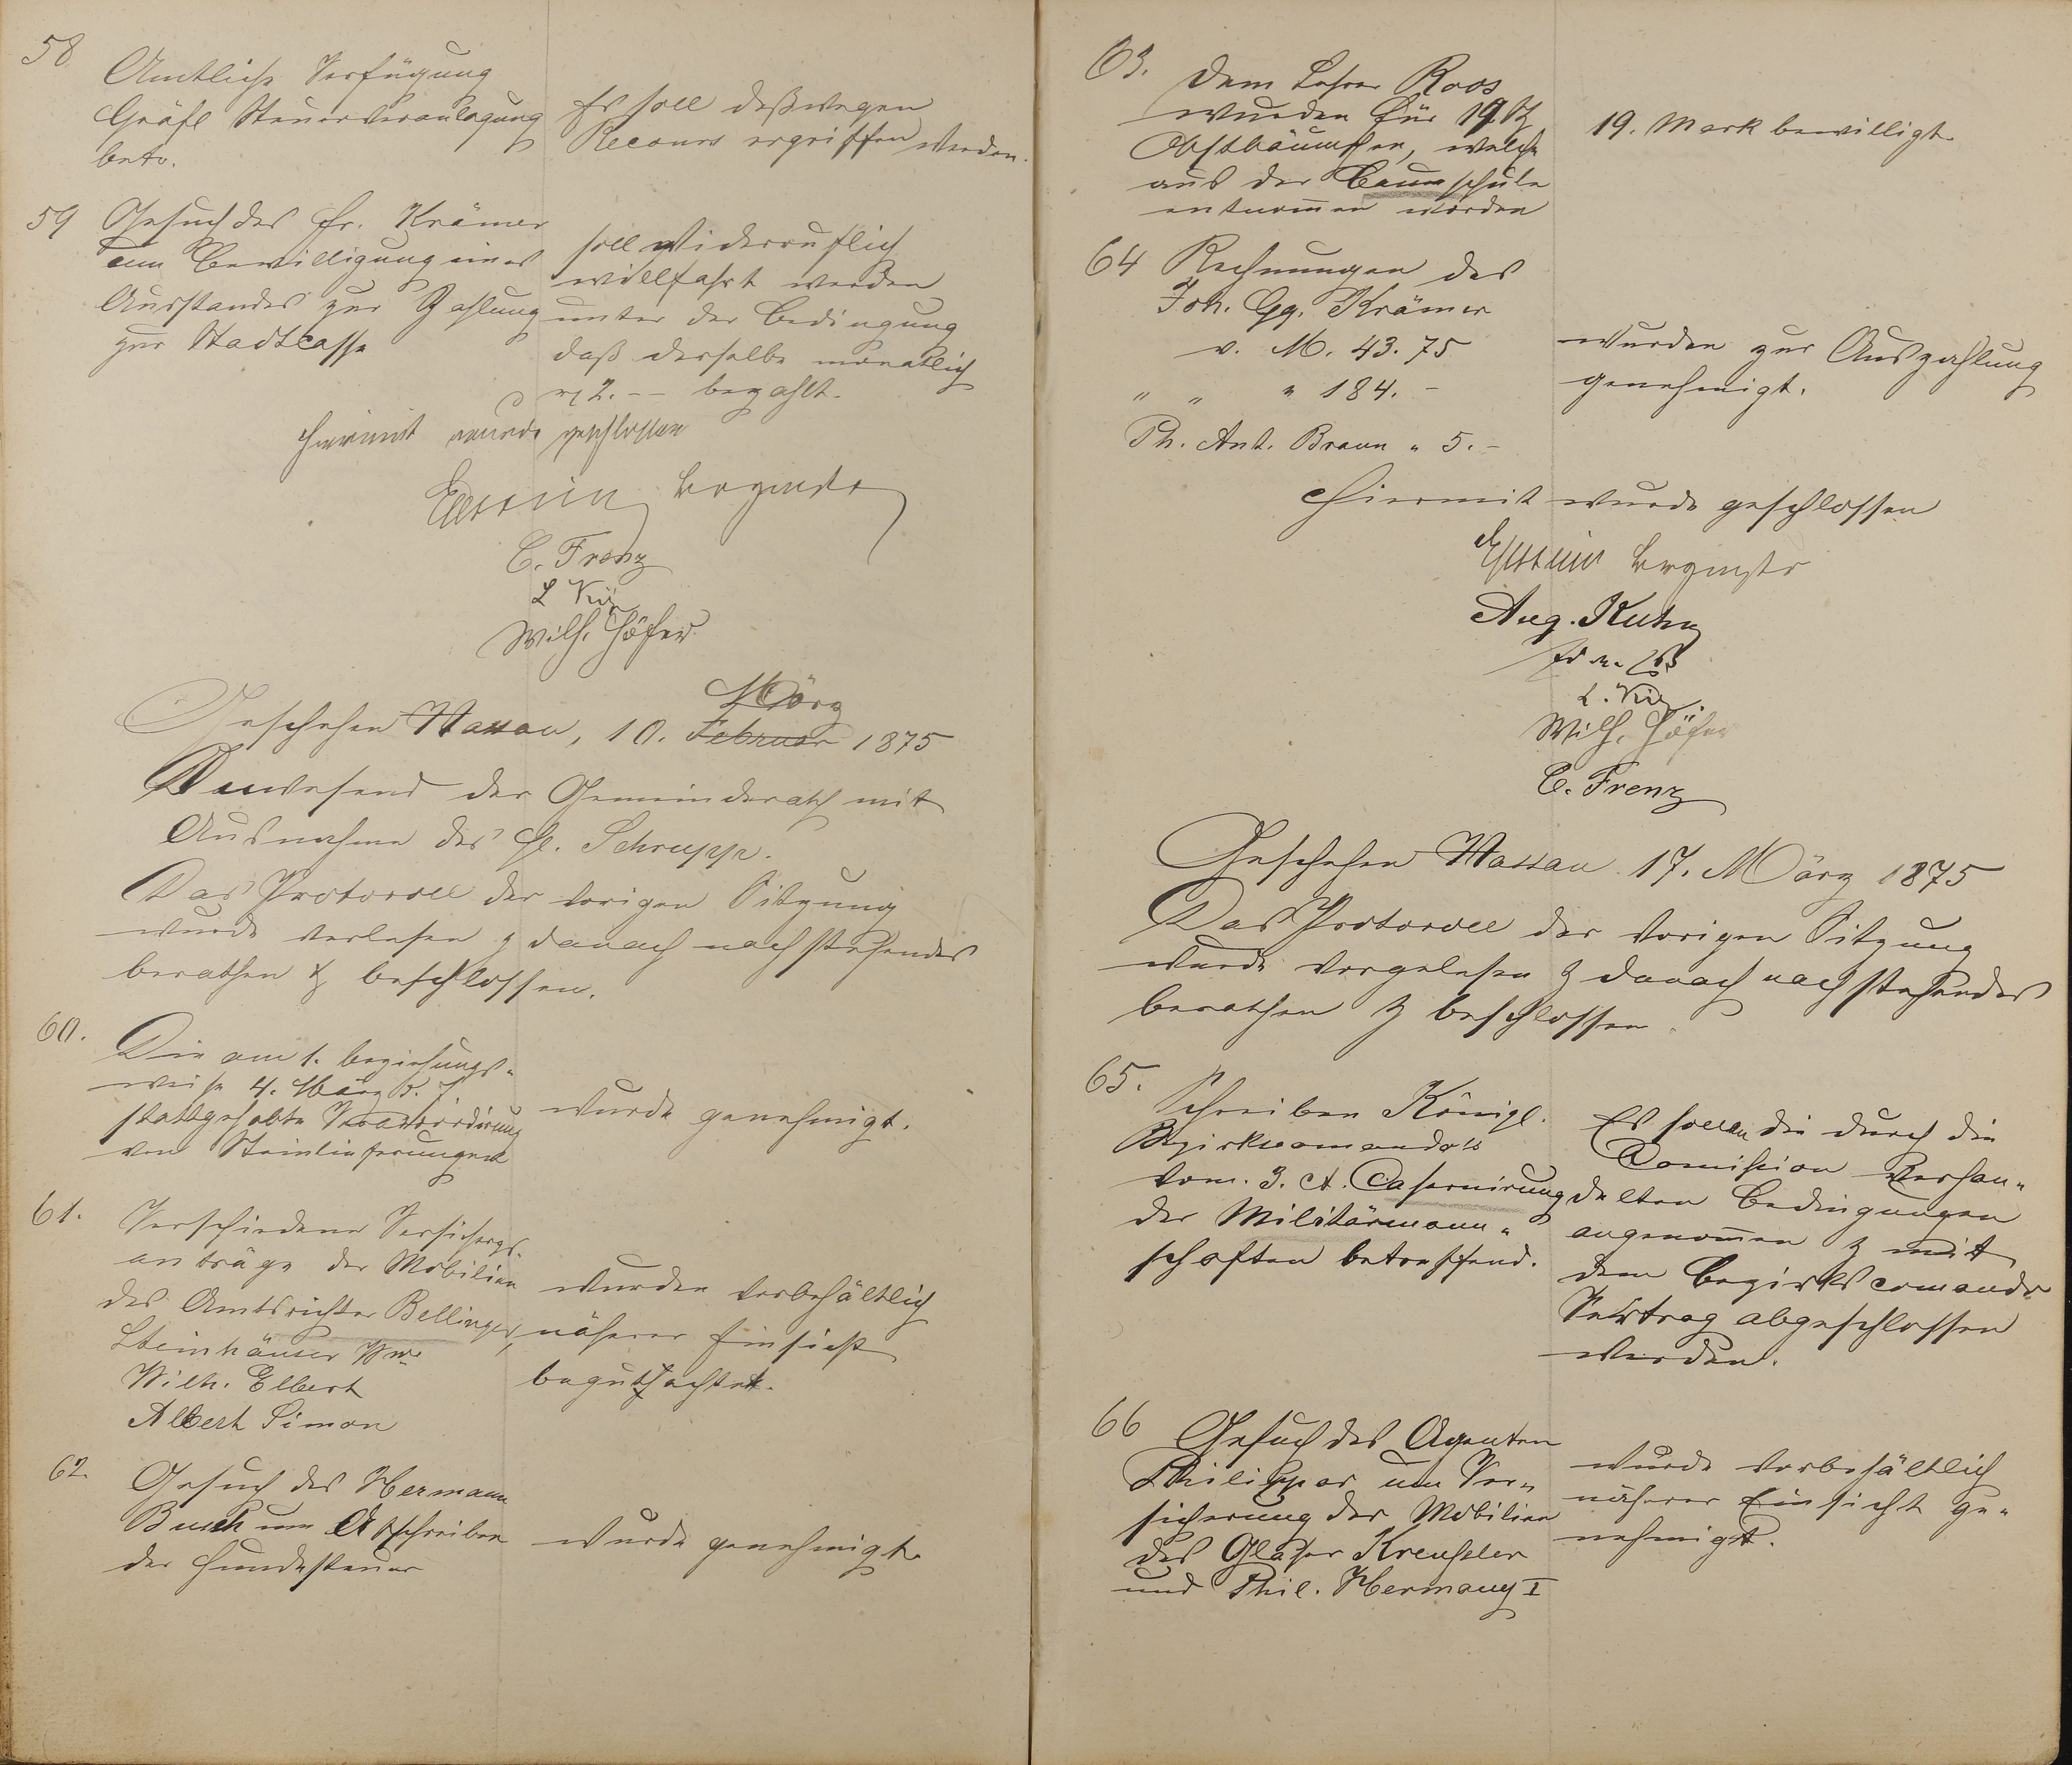 58
Amtliche Verfügung
Gräfl Steuerveranlagung
betr.
Es soll deßwegen
Recours ergriffen werden.
59
Gesuch des Fr. Krämer
um Bewilligung eines
Ausstandes zur Zahlung
zur Stadtcasse
soll widerruflich
willfahrt werden
unter der Bedingung
daß derselbe monatlich
2.-- bezahlt.
Hiermit wurde geschlossen
Brgmstr
C. Frenz
Wilh. Höfer
März
Geschehen Nassau, 10. Februar 1875
Anwesend der Gemeinderath mit
Ausnahme des H. Schrupp.
Das Protocoll der vorigen Sitzung
wurde verlesen & danach nachstehendes
berathen & beschlossen.
60.
Die am 1. beziehungs-
weise 4. März d. J.
stattgehabte
von Steinlieferungen
wurde genehmigt.
61.
Verschiedene Versichergs-
anträge der Mobilien
des Amtsrichter Bellinger,
Steinhäuser Wwe
Wilh. Elbert
Albert Simon
wurden vorbehältlich
näherer Einsicht
begutachtet.
62.
Gesuch des Hermann
Busch um Abschreiben
der Hundesteuer
wurde genehmigt.
63.
Dem Lehrer Roos
wurden für 19 St
Obstbäumchen, welche
aus der Baumschule
entnom̄en worden
19. Mark bewilligt
64
Rechnungen des
Joh. Gg. Krämer
v. M. 43.75
" " " 184.-
Ph. Ant. Braun " 5.-
wurden zur Auszahlung
genehmigt.
Hiermit wurde geschlossen
Brgmstr
Aug. Kuhn
Wilh. Höfer
C. Frenz
Geschehen Nassau 17. März 1875
Das Protocoll der vorigen Sitzung
wurde vorgelesen & danach nachstehendes
berathen & beschlossen.
65.
Schreiben Königl.
Bezirkscomando's
vom 3. ct. Casernirung
der Militärmann-
schaften betreffend.
Es sollen die durch die
Comission verhan-
delten Bedingungen
angenom̄en & mit
dem Bezirkscomando
Vertrag abgeschlossen
werden.
66
Gesuch des Agenten
Philippar um Ver-
sicherung der Mobilien
des Glaser Kreuseler
und Phil. Hermany I
wurde vorbehältlich
näherer Einsicht ge-
nehmigt.